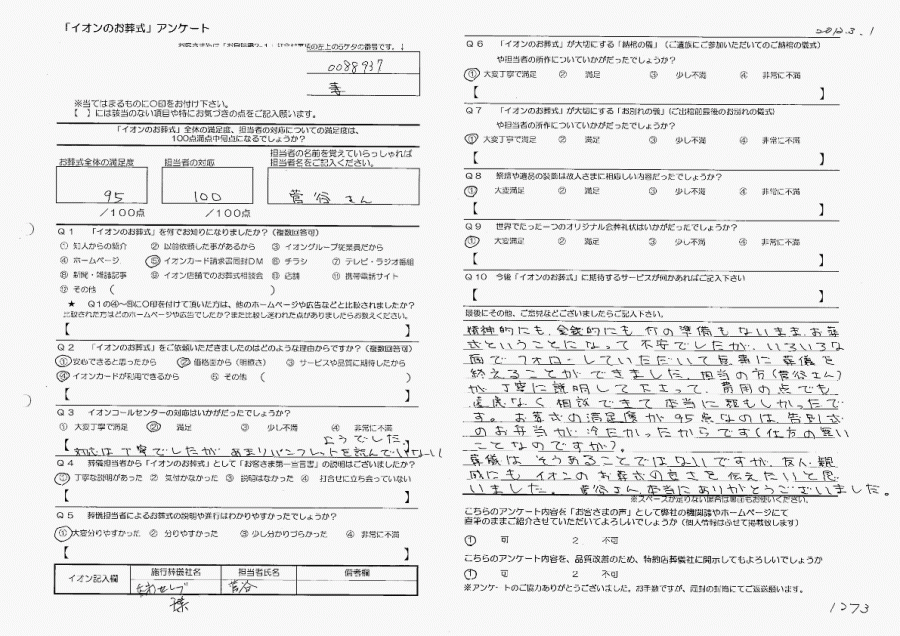 「イオンのお葬式」アンケート
0088937
※当てはまるものに○印をお付け下さい。
【 】には該当のない項目や特にお気づきの点をご記入願います。
「イオンのお葬式」全体の満足度、担当者の対応についての満足度は、
100点満点中何点になるでしょうか？
お葬式全体の満足度
95
/100点
担当者の対応
100
/100点
担当者の名前を覚えていらっしゃれば
担当者名をご記入ください。
菅谷さん
Q1 「イオンのお葬式」を何でお知りになりましたか？（複数回答可）
① 知人からの紹介 ② 以前依頼した事があるから ③ イオングループ従業員だから
④ ホームページ ⑤ イオンカード請求書同封DM ⑥ チラシ ⑦ テレビ・ラジオ番組
⑧ 新聞・雑誌記事 ⑨ イオン店舗でのお葬式相談会 ⑩ 店舗 ⑪ 携帯電話サイト
⑫ その他 （ ）
★ Q1の④～⑧に○印を付けて頂いた方は、他のホームページや広告などと比較されましたか？
比較された方はどのホームページや広告でしたか？また比較し迷われた点がありましたらお教えください。
【 】
Q2 「イオンのお葬式」をご依頼いただきましたのはどのような理由からですか？（複数回答可）
① 安心できると思ったから ② 価格面から（明瞭さ） ③ サービスや品質に期待したから
④ イオンカードが利用できるから ⑤ その他 （ ）
【 】
Q3 イオンコールセンターの対応はいかがだったでしょうか？
① 大変丁寧で満足 ② 満足 ③ 少し不満 ④ 非常に不満
【対応は丁寧でしたがあまりパンフレットを読んでいない
ようでした。】
Q4 葬儀担当者から「イオンのお葬式」として「お客さま第一宣言書」の説明はございましたか？
① 丁寧な説明があった ② 気付かなかった ③ 説明はなかった ④ 打合せに立ち会っていない
【 】
Q5 葬儀担当者によるお葬式の説明や進行はわかりやすかったでしょうか？
① 大変分りやすかった ② 分りやすかった ③ 少し分かりづらかった ④ 非常に不満
【 】
イオン記入欄
施行葬儀社名 担当者氏名 備考欄
菅谷
様
2012.3.1
Q6 「イオンのお葬式」が大切にする「納棺の儀」（ご遺族にご参加いただいてのご納棺の儀式）
や担当者の所作についていかがだったでしょうか？
① 大変丁寧で満足 ② 満足 ③ 少し不満 ④ 非常に不満
【 】
Q7 「イオンのお葬式」が大切にする「お別れの儀」（ご出棺前最後のお別れの儀式）
や担当者の所作についていかがだったでしょうか？
① 大変丁寧で満足 ② 満足 ③ 少し不満 ④ 非常に不満
【 】
Q8 祭壇や遺品の装飾は故人さまに相応しい内容だったでしょうか？
① 大変満足 ② 満足 ③ 少し不満 ④ 非常に不満
【 】
Q9 世界でたった一つのオリジナル会葬礼状はいかがだったでしょうか？
① 大変満足 ② 満足 ③ 少し不満 ④ 非常に不満
【 】
Q10 今後「イオンのお葬式」に期待するサービスが何かあればご記入下さい
【 】
最後にその他、ご意見などございましたらご記入下さい。
精神的にも、金銭的にも何の準備もないまま、お葬
式ということになって不安でしたが、いろいろな
面でフォローしていただいて無事に葬儀を
終えることができました。担当の方（菅谷さん）
が丁寧に説明して下さって、費用の点でも
遠慮なく相談できて本当に頼もしかったで
す。お葬式の満足度が95点なのは、告別式
のお弁当が冷たかったからです（仕方の無い
ことなのですが）。
葬儀はそうあることではないですが、友人、親
戚にもイオンのお葬式の良さを伝えたいと思
いました。菅谷さん、本当にありがとうございました。
※スペースが足りない場合は裏面もお使いください。
こちらのアンケート内容を「お客さまの声」として弊社の機関誌やホームページにて
直筆のままご紹介させていただいてよろしいでしょうか（個人情報はふせて掲載致します）
① 可 2 不可
こちらのアンケート内容を、品質改善のため、特約店葬儀社に開示してもよろしいでしょうか
① 可 2 不可
※アンケートのご協力ありがとうございました。お手数ですが、同封の封筒にてご返送願います。
1273